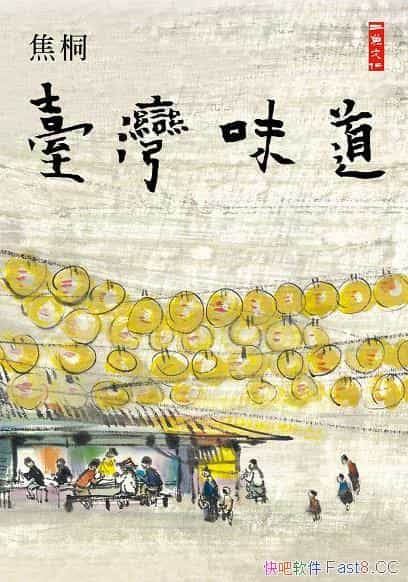 焦桐
二魚文化
臺灣味道
快吧软件 Fast8.CC